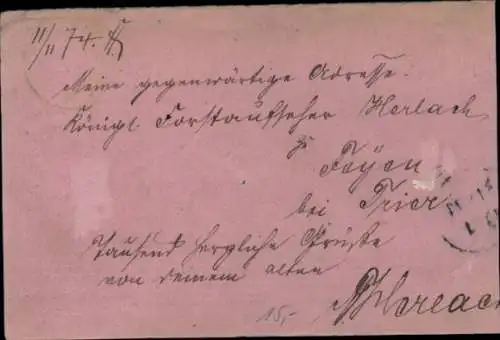 11/11 74.
Meine gegenwärtige Adresse.
Königl. Forstaufseher Herlach
zu
Feyen
bei Trier
Tausend herzliche Grüße
von deinem alten
Herlach
15,-